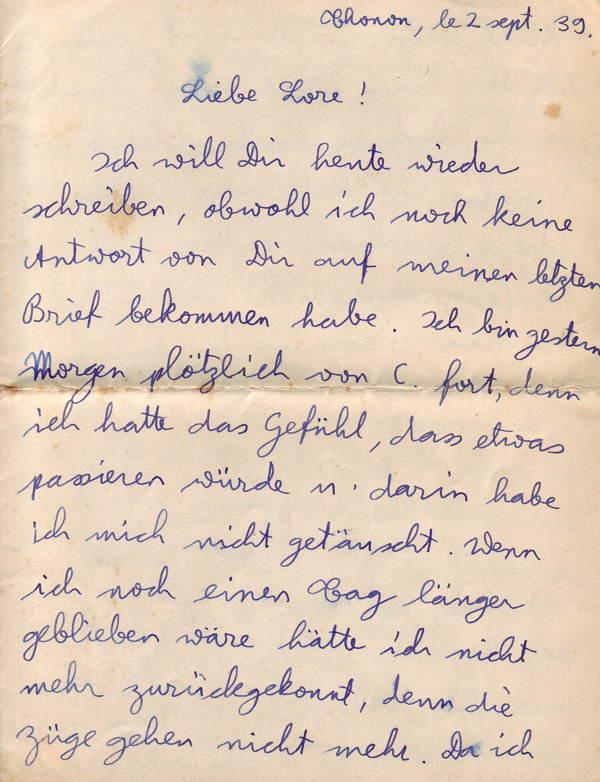 Thonon, le 2 sept. 39.
Liebe Lore !
Ich will Dir heute wieder
schreiben, obwohl ich noch keine
Antwort von Dir auf meinen letzten
Brief bekommen habe. Ich bin gestern
Morgen plötzlich von C. fort, denn
ich hatte das Gefühl, dass etwas
passieren würde u. darin habe
ich mich nicht getäuscht. Wenn
ich noch einen Tag länger
geblieben wäre hätte ich nicht
mehr zurückgekonnt, denn die
Züge gehen nicht mehr. Da ich